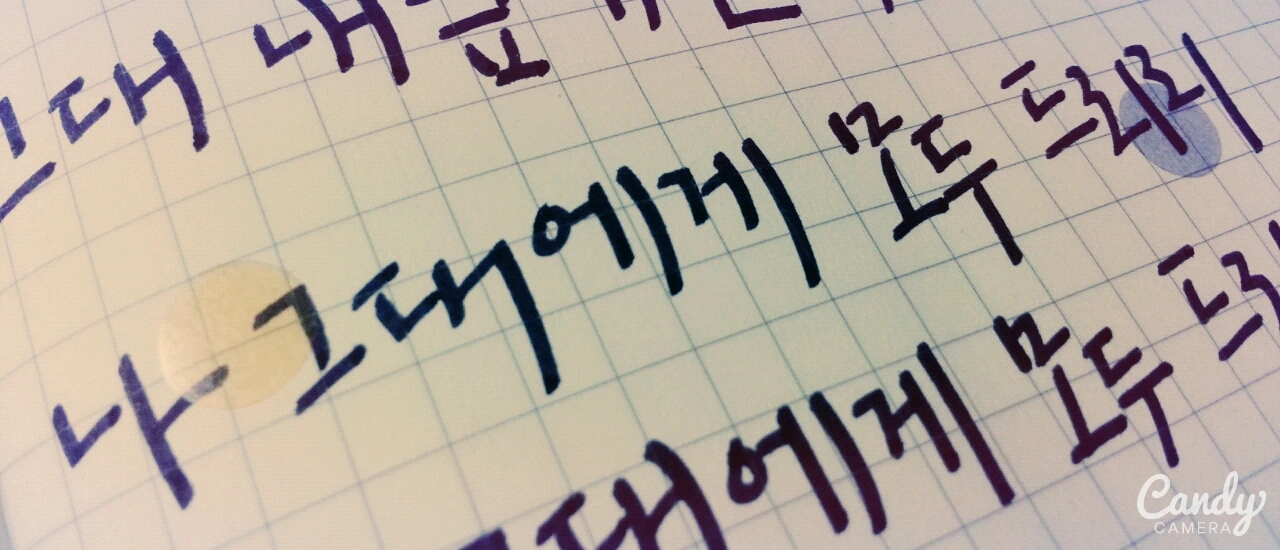 그대 내품
나 그대에게 모두 드리리
대에게 모두 드
Candy
CAMERA